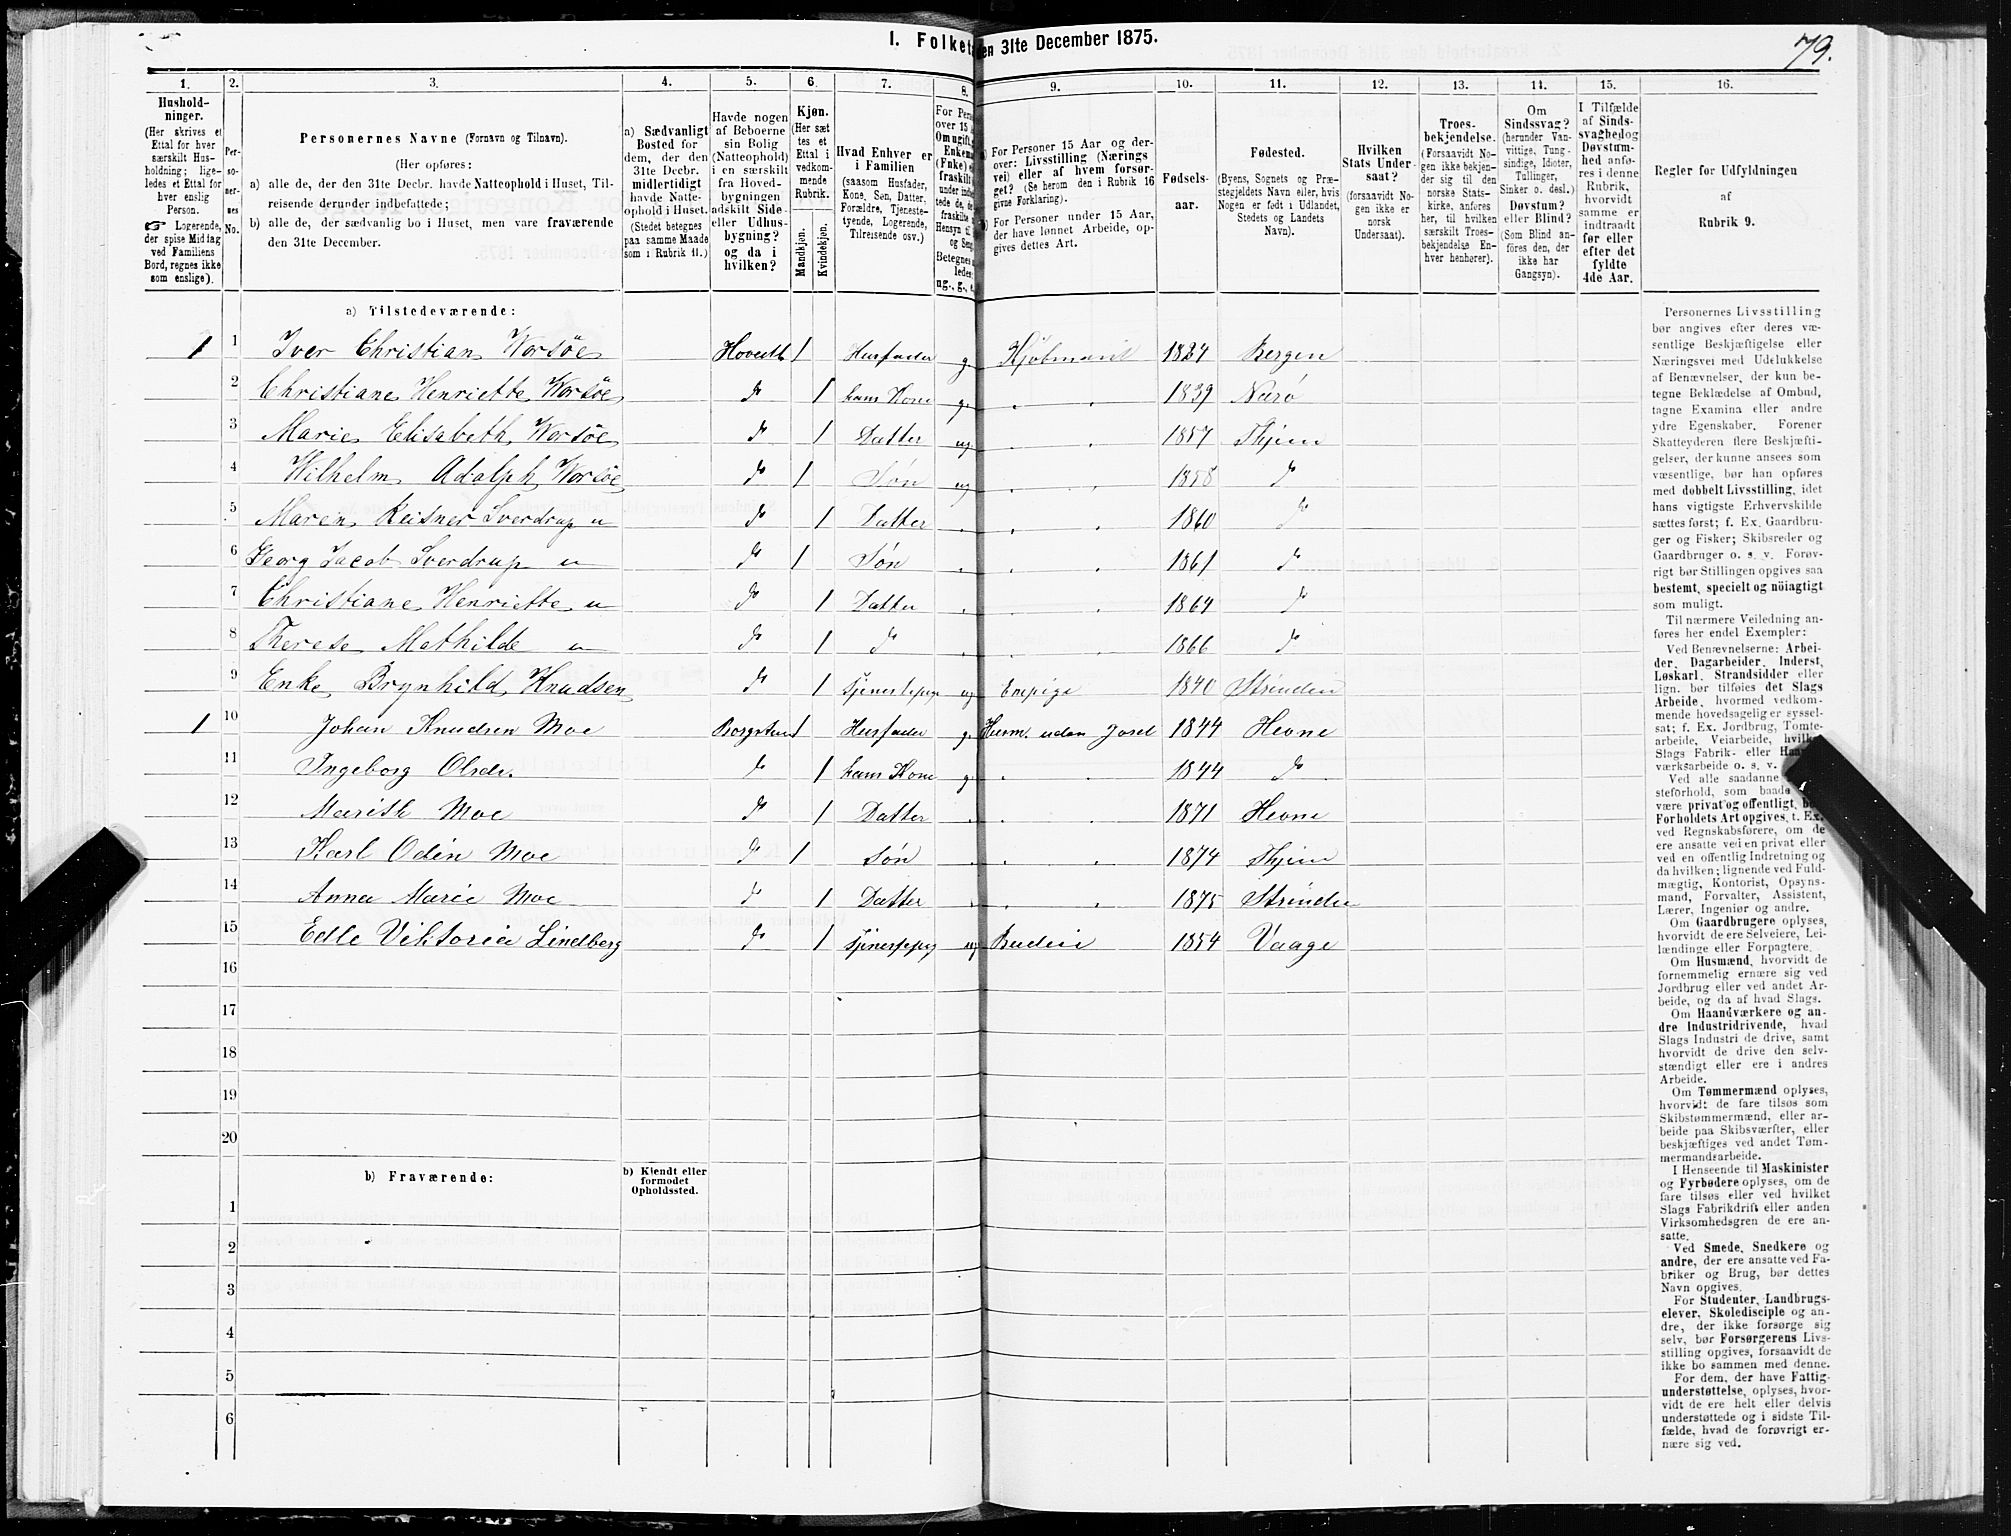 I. Folket
en 31te December 1875.
79.
1. 2. 3. 4. 5. 6. 7. 8. 9. 10. 11. 12. 13. 14. 15. 16.
Hushold-
ninger.
(Her skrives et
Ettal for hver
særskilt Hus-
holdning; lige-
ledes et Ettal for
hver enslig
Person.
☞ Logerende,
der spise Middag
ved Familiens
Bord, regnes ikke
som enslige).
Per-
so-
ner-
nes
No.
Personernes Navne (Fornavn og Tilnavn).
(Her opføres:
a) alle de, der den 31te Decbr. havde Natteophold i Huset, Til-
reisende derunder indbefattede;
b) alle de, der sædvanlig bo i Huset, men vare fraværende
den 31te December.
a) Sædvanligt
Bosted for
dem, der den
31te Decbr.
midlertidigt
havde Natte-
ophold i Huset.
(Stedet betegnes
paa samme Maade
som i Rubrik 11.)
Havde nogen
af Beboerne
sin Bolig
(Natteophold)
i en særskilt
fra Hoved-
bygningen
adskilt Side-
eller Udhus-
bygning?
og da i
hvilken?
Kjøn.
(Her sæt-
tes et
Ettal i
vedkom-
mende
Rubrik.
Mandkjøn.
Kvindekjøn.
Hvad Enhver er
i Familien
(saasom Husfader,
Kone, Søn, Datter,
Forældre, Tjeneste-
tyende, Logerende,
Tilreisende osv.)
For Pers
over 15 A
Om ugift,
Enkem
(Fnke)
fraskilt
under indbe
tede de, de
fraskilte
Hensyn til
og Seng
Betegnes
ledes:
ug., g., e.
For Personer 15 Aar og der-
over: Livsstilling (Nærings
vei) eller af hvem forsør-
get? (Se herom den i Rubrik 16
givne Forklaring).
For Personer under 15 Aar,
der have lønnet Arbeide, op-
gives dettes Art.
Fødsels-
aar.
Fødested.
(Byens, Sognets og Præ-
stegjeldets Navn eller, hvis
Nogen er født i Udlandet,
Stedets og Landets
Navn).
Hvilken
Stats Under-
saat?
(forsaavidt No-
gen ikke er
norsk
Undersaat).
Troes-
bekjendelse.
(Forsaavidt No-
gen ikke bekjen-
der sig til den
norske Stats-
kirke, anføres
her, til hvilken
særskilt Troes-
bekjendelse En-
hver henhører).
Om
Sindssvag?
(herunder Van-
vittige, Tung-
sindige, Idioter,
Tullinger,
Sinker o. desl.)
Døvstum?
eller Blind?
(Som Blind an-
føres den, der
ikke har
Gangsyn).
I Tilfælde
af Sinds-
svaghed og
Døvstum-
hed anfø-
res i denne
Rubrik,
hvorvidt
samme er
indtraadt
før eller
efter det
fyldte
4de Aar.
Regler for Udfyldningen
af
Rubrik 9.
a) Tilstedeværende:
1 1 Iver Christian Worsöe Hovedb 1 Husfader g. Kjöbmand 1824 Bergen
2 Christiane Henriette Worsöe do 1 hans Kone g. " " 1839 Nærö
3 Marie Elisabeth Worsöe do 1 Datter ug " 1857 Thjem
4 Wilhelm Adolph Worsöe do 1 Søn ug " " 1858 do
5 Maren Reisner Sverdrup " do 1 Datter " " " 1860 do
6 Georg Jacob Sverdrup " do 1 Søn " " " 1861 do
7 Christiane Henriette " do 1 Datter " " " 1864 do
8 Therese Mathilde " do 1 do " " " 1866 do
9 Enke Brynhild Knudsen do 1 Tjenestepige ug Enpige 1840 Strinden
1 10 Johan Knudsen Moe Borgstue 1 Husfader g. Husm. uden Jord 1844 Hevne
11 Ingeborg Olsdr. do 1 hans Kone g. " " 1844 do
12 Marith Moe do 1 Datter " " " 1871 Hevne
13 Karl Odin Moe do 1 Søn " " " 1874 Thjem
14 Anna Marie Moe do 1 Datter " " " 1875 Strinden
15 Edle Viktoria Lindberg do 1 Tjenestepig ug Budeie 1854 Vaage
16
17
18
19
20
b) Fraværende:
b) Kjendt eller
formodet
Opholdssted.
1
2
3
4
5
6
Personernes Livsstilling
bør angives efter deres væ-
sentlige Beskjæftigelse eller
Næringsvei med Udelukkelse
af Benævnelser, der kun be-
tegne Beklædelse af Ombud,
tagne Examina eller andre
ydre Egenskaber. Forener
Skatteyderen flere Beskjæfti-
gelser, der kunne ansees som
væsentlige, bør han opføres
med dobbelt Livsstilling, idet
hans vigtigste Erhvervskilde
sættes først; f. Ex. Gaardbru-
ger og Fisker; Skibsreder og
Gaardbruger o. s. v. Forøv-
rigt bør Stillingen opgives saa
bestemt, specielt og nöiagtigt
som muligt.
Til nærmere Veiledning an-
føres her endel Exempler:
Ved Benævnelserne: Arbei-
der, Dagarbeider, Inderst,
Løskarl, Strandsidder eller
lign. bør tilføies det Slags
Arbeide, hvormed vedkom-
mende hovedsagelig er syssel-
sat; f. Ex. Jordbrug, Tomte-
arbeide, Veiarbeide, hvilket
Slags Fabrik- eller Haand-
værksarbeide o. s. v.
Ved alle saadanne
steforhold, som baade
være privat og offentligt, bør
Forholdets Art opgives, t. Ex.
ved Regnskabsførere, om de
ere ansatte ved en privat eller
ved en offentlig Indretning og
da hvilken; lignende ved Fuld-
mægtig, Kontorist, Opsyns-
mand, Forvalter, Assistent,
Lærer, Ingeniør og andre.
Om Gaardbrugere oplyses,
hvorvidt de ere Selveiere, Lei-
lændinge eller Forpagtere.
Om Husmænd, hvorvidt de
fornemmelig ernære sig ved
Jordbrug eller ved andet Ar-
beide, og da af hvad Slags.
Om Haandværkere og an-
dre Industridrivende, hvad
Slags Industri de drive, samt
hvorvidt de drive den selv-
stændigt eller ere i andres
Arbeide.
Om Tømmermænd oplyses,
hvorvidt de fare tilsøs som
Skibstømmermænd, eller ar-
beide paa Skibsværfter, eller
beskjæftiges ved andet Tøm-
mermandsarbeide.
I Henseende til Maskinister
og Fyrbødere oplyses, om de
fare tilsøs eller ved hvilket
Slags Fabrikdrift eller anden
Virksomhedsgren de ere an-
satte.
Ved Smede, Snedkere og
andre, der ere ansatte ved Fa-
briker og Brug, bør dettes
Navn opgives.
For Studenter, Landbrugs-
elever, Skoledisciple og an-
dre, der ikke forsørge sig
selv, bør Forsørgerens Livs-
stilling opgives, forsaavidt de
ikke bo sammen med denne.
For dem, der have Fattig-
understøttelse, oplyses, hvor-
vidt de ere helt eller delvis
understøttede og i sidste Til-
fælde, hvad de forøvrigt er-
nære sig ved.